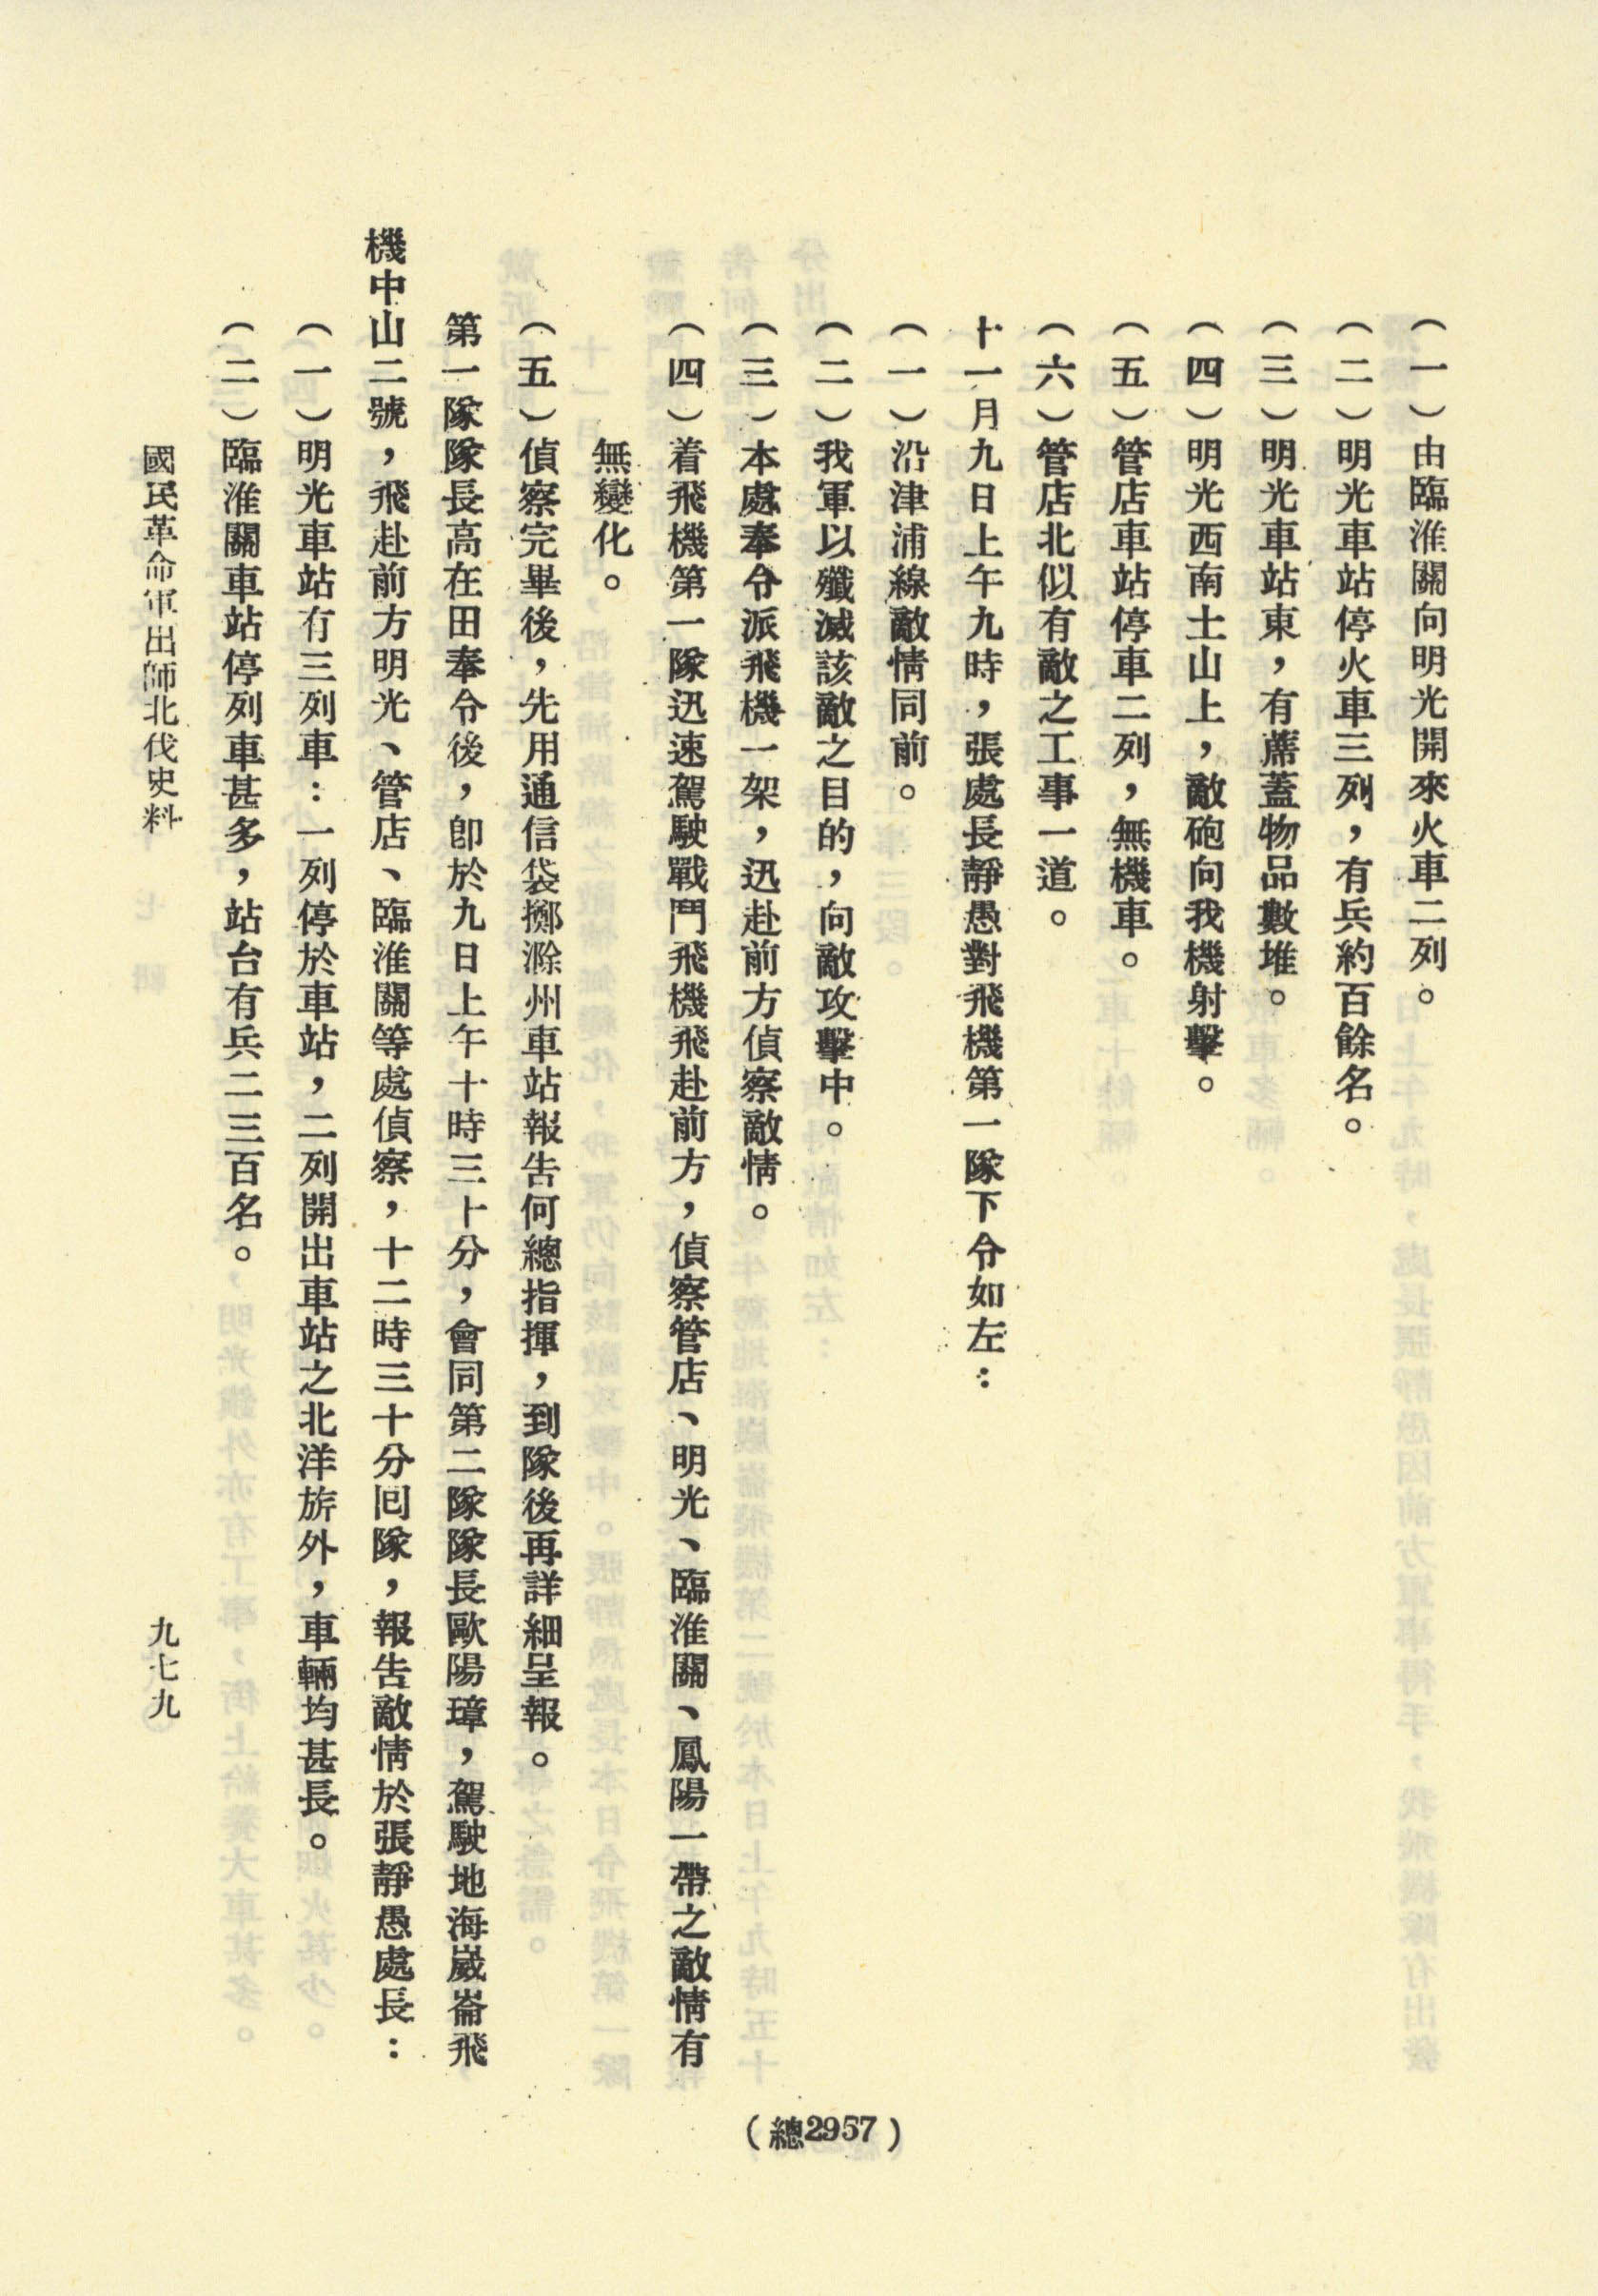 （一）由臨淮關向明光開來火車二列。
（二）明光車站停火車三列，有兵約百餘名。
（三）明光車站東，有蓆蓋物品數堆。
（四）明光西南土山上，敵砲向我機射擊。
（五）管店車站停車二列，無機車。
（六）管店北似有敵之工事一道。
十一月九日上午九時，張處長靜愚對飛機第一隊下令如左：
（一）沿津浦線敵情同前。
（二）我軍以殲滅該敵之目的，向敵攻擊中。
（三）本處奉令派飛機一架，迅赴前方偵察敵情。
（四）着飛機第一隊迅速駕駛戰鬥飛機飛赴前方，偵察管店、明光、臨淮關、鳳陽一帶之敵情有
無變化。
（五）偵察完畢後，先用通信袋擲滁州車站報告何總指揮，到隊後再詳細呈報。
第一隊隊長高在田奉令後，卽於九日上午十時三十分，會同第二隊隊長歐陽璋，駕駛地海崴崙飛
機中山二號，飛赴前方明光、管店、臨淮關等處偵察，十二時三十分回隊，報告敵情於張靜愚處長：
（一）明光車站有三列車：一列停於車站，二列開出車站之北洋旂外，車輛均甚長。
（二）臨淮關車站停列車甚多，站台有兵二三百名。
國民革命軍出師北伐史料
九七九
（總2957）